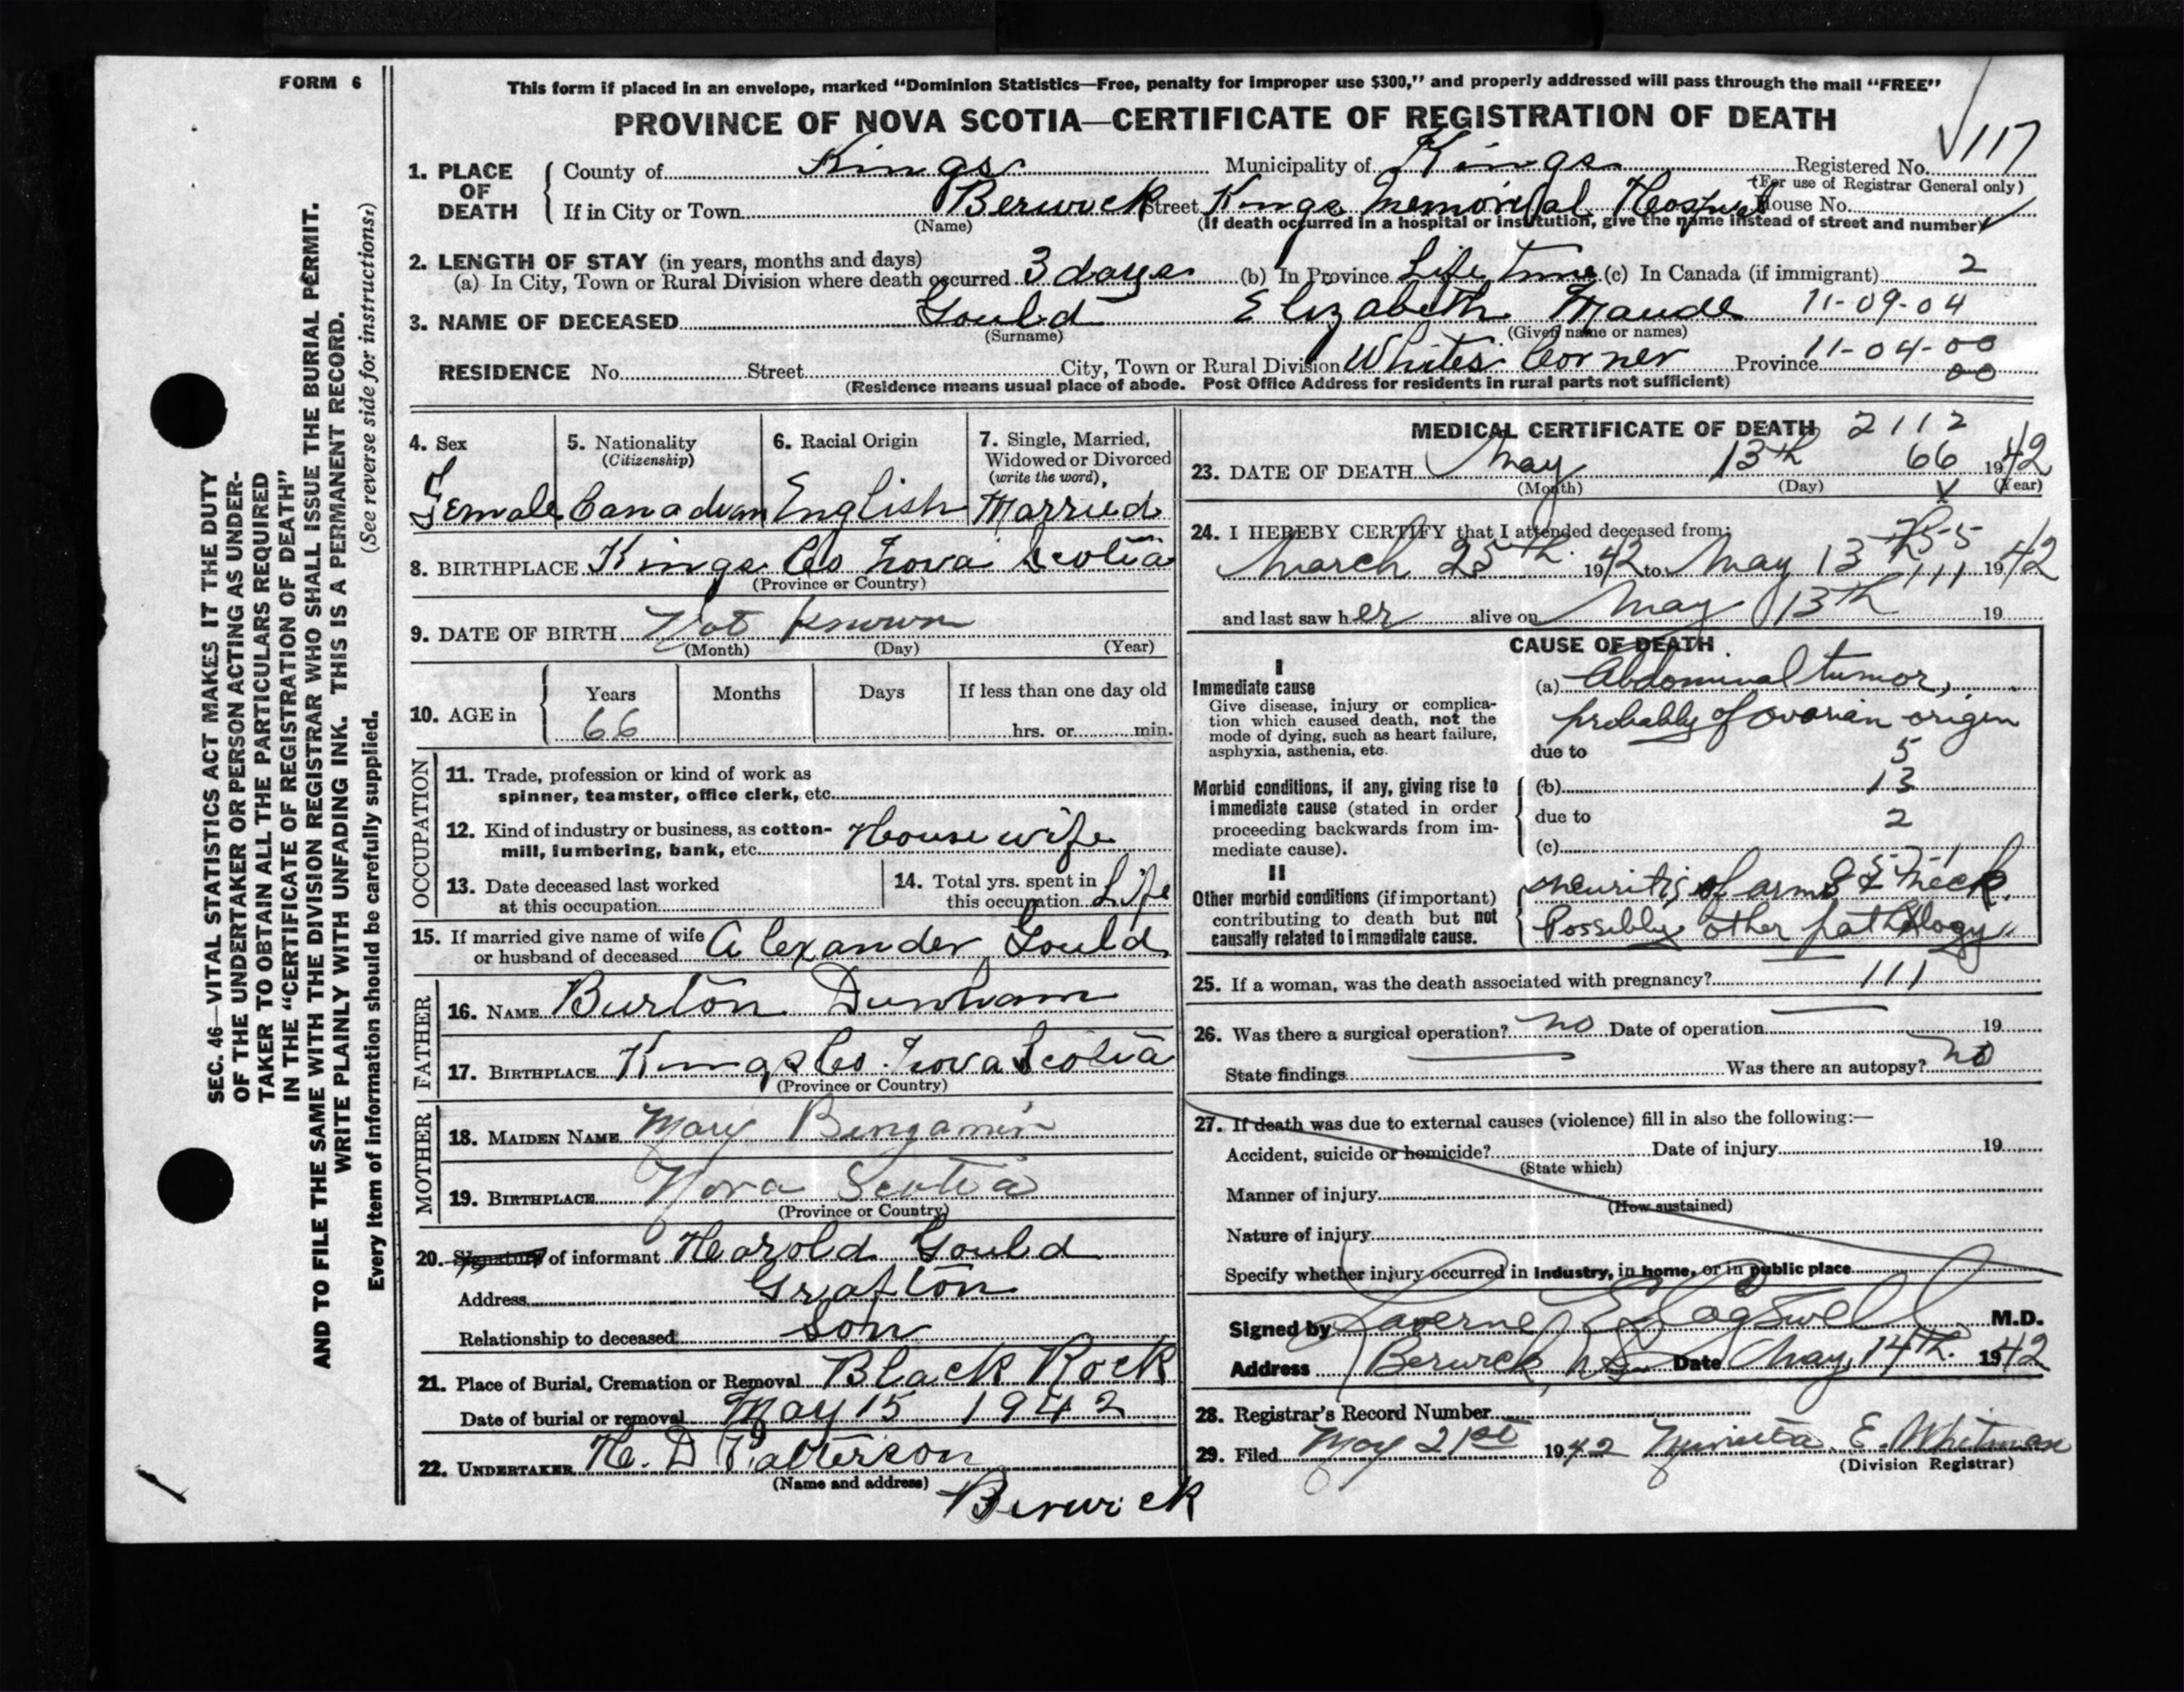 FORM 6
This form if placed in an envelope, marked “Dominion Statistics—Free, penalty for improper use $300,” and properly addressed will pass through the mail “FREE”
PROVINCE OF NOVA SCOTIA—CERTIFICATE OF REGISTRATION OF DEATH
1. PLACE OF DEATH County of Kings Municipality of Kings Registered No. 117
(For use of Registrar General only)
If in City or Town Berwick Street Kings Memorial Hospital House No.
(Name) (If death occurred in a hospital or institution, give the name instead of street and number)
2. LENGTH OF STAY (in years, months and days)
(a) In City, Town or Rural Division where death occurred 3 days (b) In Province Life Time (c) In Canada (if immigrant) 2
3. NAME OF DECEASED Gould Elizabeth Maude 11-09-04
(Surname) (Given name or names)
RESIDENCE No. Street City, Town or Rural Division Whites Corner Province 11-04-00
00
(Residence means usual place of abode. Post Office Address for residents in rural parts not sufficient)
4. Sex Female
5. Nationality (Citizenship) Canadian
6. Racial Origin English
7. Single, Married, Widowed or Divorced (write the word) Married
8. BIRTHPLACE Kings Co Nova Scotia
(Province or Country)
9. DATE OF BIRTH Not Known
(Month) (Day) (Year)
10. AGE in Years Months Days If less than one day old
66 hrs. or min.
OCCUPATION
11. Trade, profession or kind of work as
spinner, teamster, office clerk, etc.
12. Kind of industry or business, as cotton-
mill, lumbering, bank, etc. House wife
13. Date deceased last worked
at this occupation
14. Total yrs. spent in
this occupation Life
15. If married give name of wife
or husband of deceased Alexander Gould
FATHER
16. NAME Burton Dunham
17. BIRTHPLACE Kings Co. Nova Scotia
(Province or Country)
MOTHER
18. MAIDEN NAME Mary Bengamin
19. BIRTHPLACE Nova Scotia
(Province or Country)
20. Signature of informant Harold Gould
Address Grafton
Relationship to deceased Son
21. Place of Burial, Cremation or Removal Black Rock
Date of burial or removal May 15 1942
22. UNDERTAKER H. D Patterson
(Name and address) Berwick
MEDICAL CERTIFICATE OF DEATH 2112
23. DATE OF DEATH May 13th 66 1942
(Month) (Day) (Year)
24. I HEREBY CERTIFY that I attended deceased from:
March 25th 1942 to May 13 1942
and last saw her alive on May 13th 19
CAUSE OF DEATH
I
Immediate cause
Give disease, injury or complica-
tion which caused death, not the
mode of dying, such as heart failure,
asphyxia, asthenia, etc.
(a) Abdominal tumor,
probably of ovarian origin
due to 5
Morbid conditions, if any, giving rise to
immediate cause (stated in order
proceeding backwards from im-
mediate cause).
(b) 13
due to 2
(c)
II
Other morbid conditions (if important)
contributing to death but not
causally related to immediate cause.
neuritis of arms & neck.
Possibly other pathology
25. If a woman, was the death associated with pregnancy? 111
26. Was there a surgical operation? no Date of operation 19
State findings Was there an autopsy? no
27. If death was due to external causes (violence) fill in also the following:—
Accident, suicide or homicide? Date of injury 19
(State which)
Manner of injury
(How sustained)
Nature of injury
Specify whether injury occurred in industry, in home, or in public place
Signed by Laverne E Cogswell M.D.
Address Berwick, N.S. Date May, 14th. 1942
28. Registrar's Record Number
29. Filed May 21st 1942 E. Whitman
(Division Registrar)
SEC. 46—VITAL STATISTICS ACT MAKES IT THE DUTY
OF THE UNDERTAKER OR PERSON ACTING AS UNDER-
TAKER TO OBTAIN ALL THE PARTICULARS REQUIRED
IN THE “CERTIFICATE OF REGISTRATION OF DEATH”
AND TO FILE THE SAME WITH THE DIVISION REGISTRAR WHO SHALL ISSUE THE BURIAL PERMIT.
WRITE PLAINLY WITH UNFADING INK. THIS IS A PERMANENT RECORD.
Every item of information should be carefully supplied. (See reverse side for instructions:)